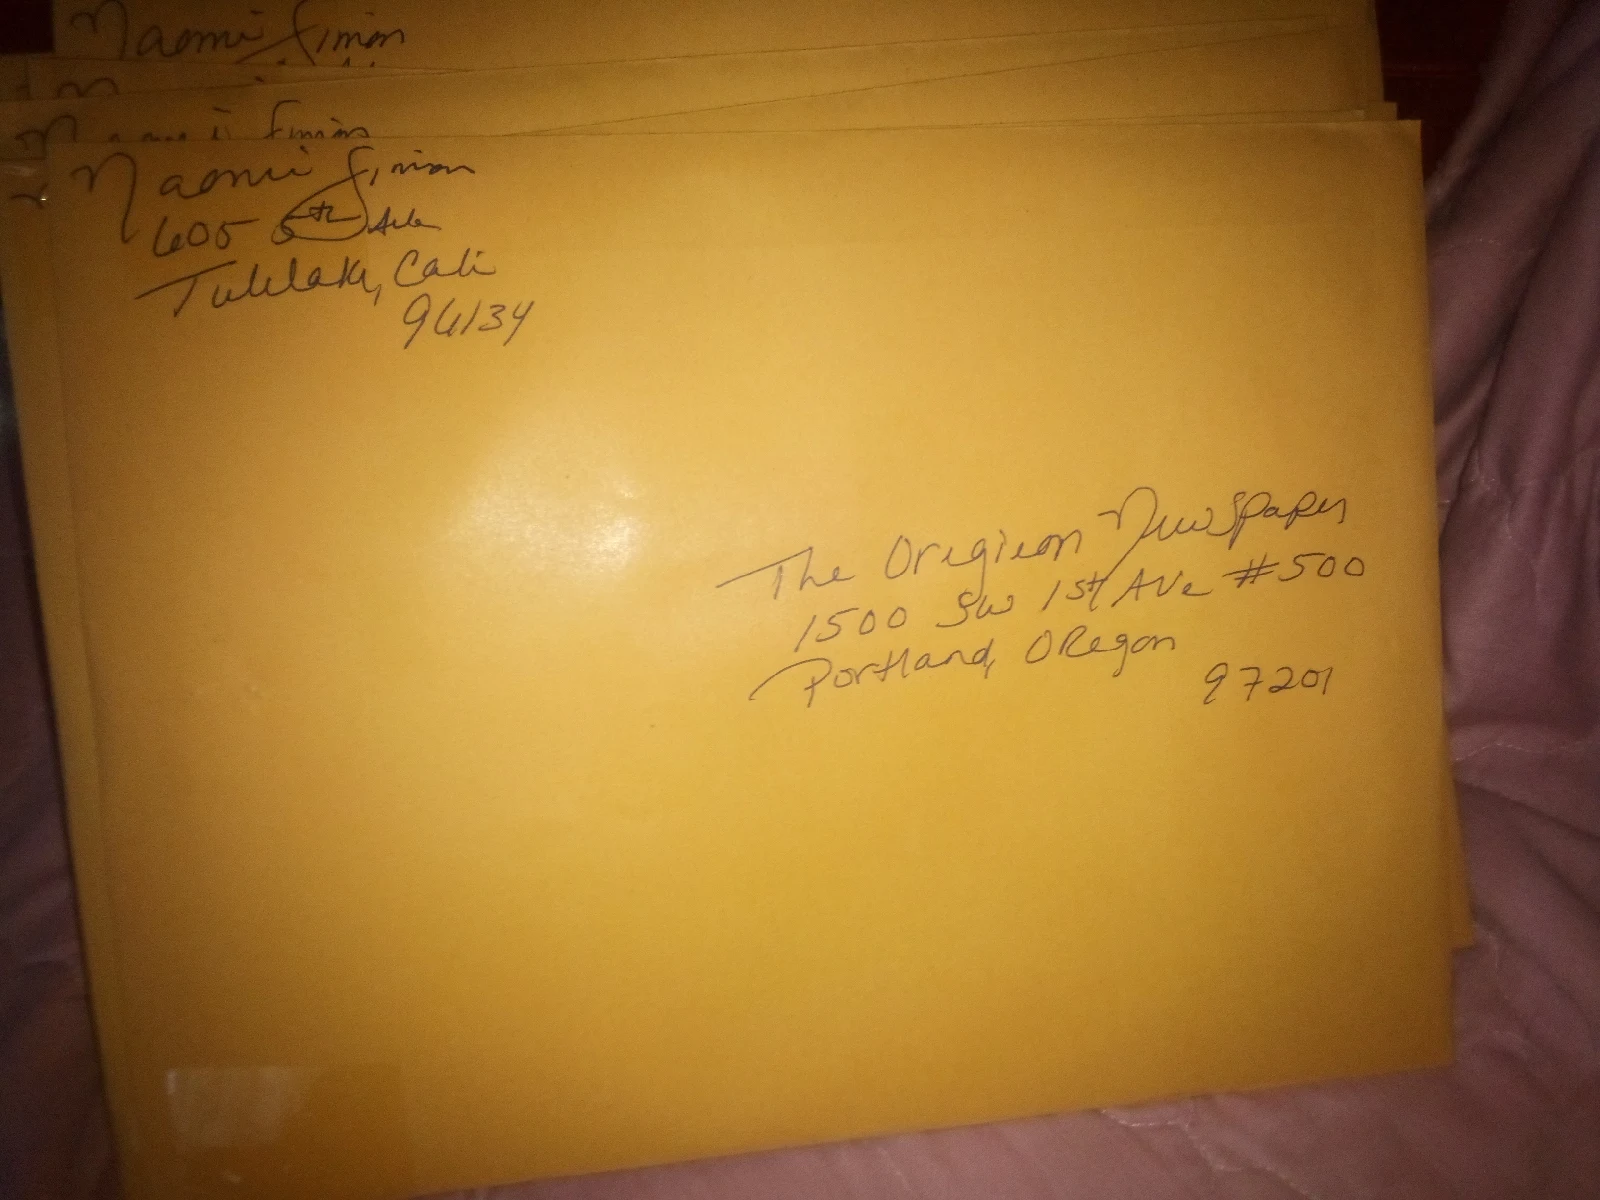 Naomi Simon
Naomi Simon
Naomi Simon
605 6th Ave
Tulelake, Cali
96134
The Oregieon Newspaper
1500 SW 1st Ave #500
Portland, Oregon
97201